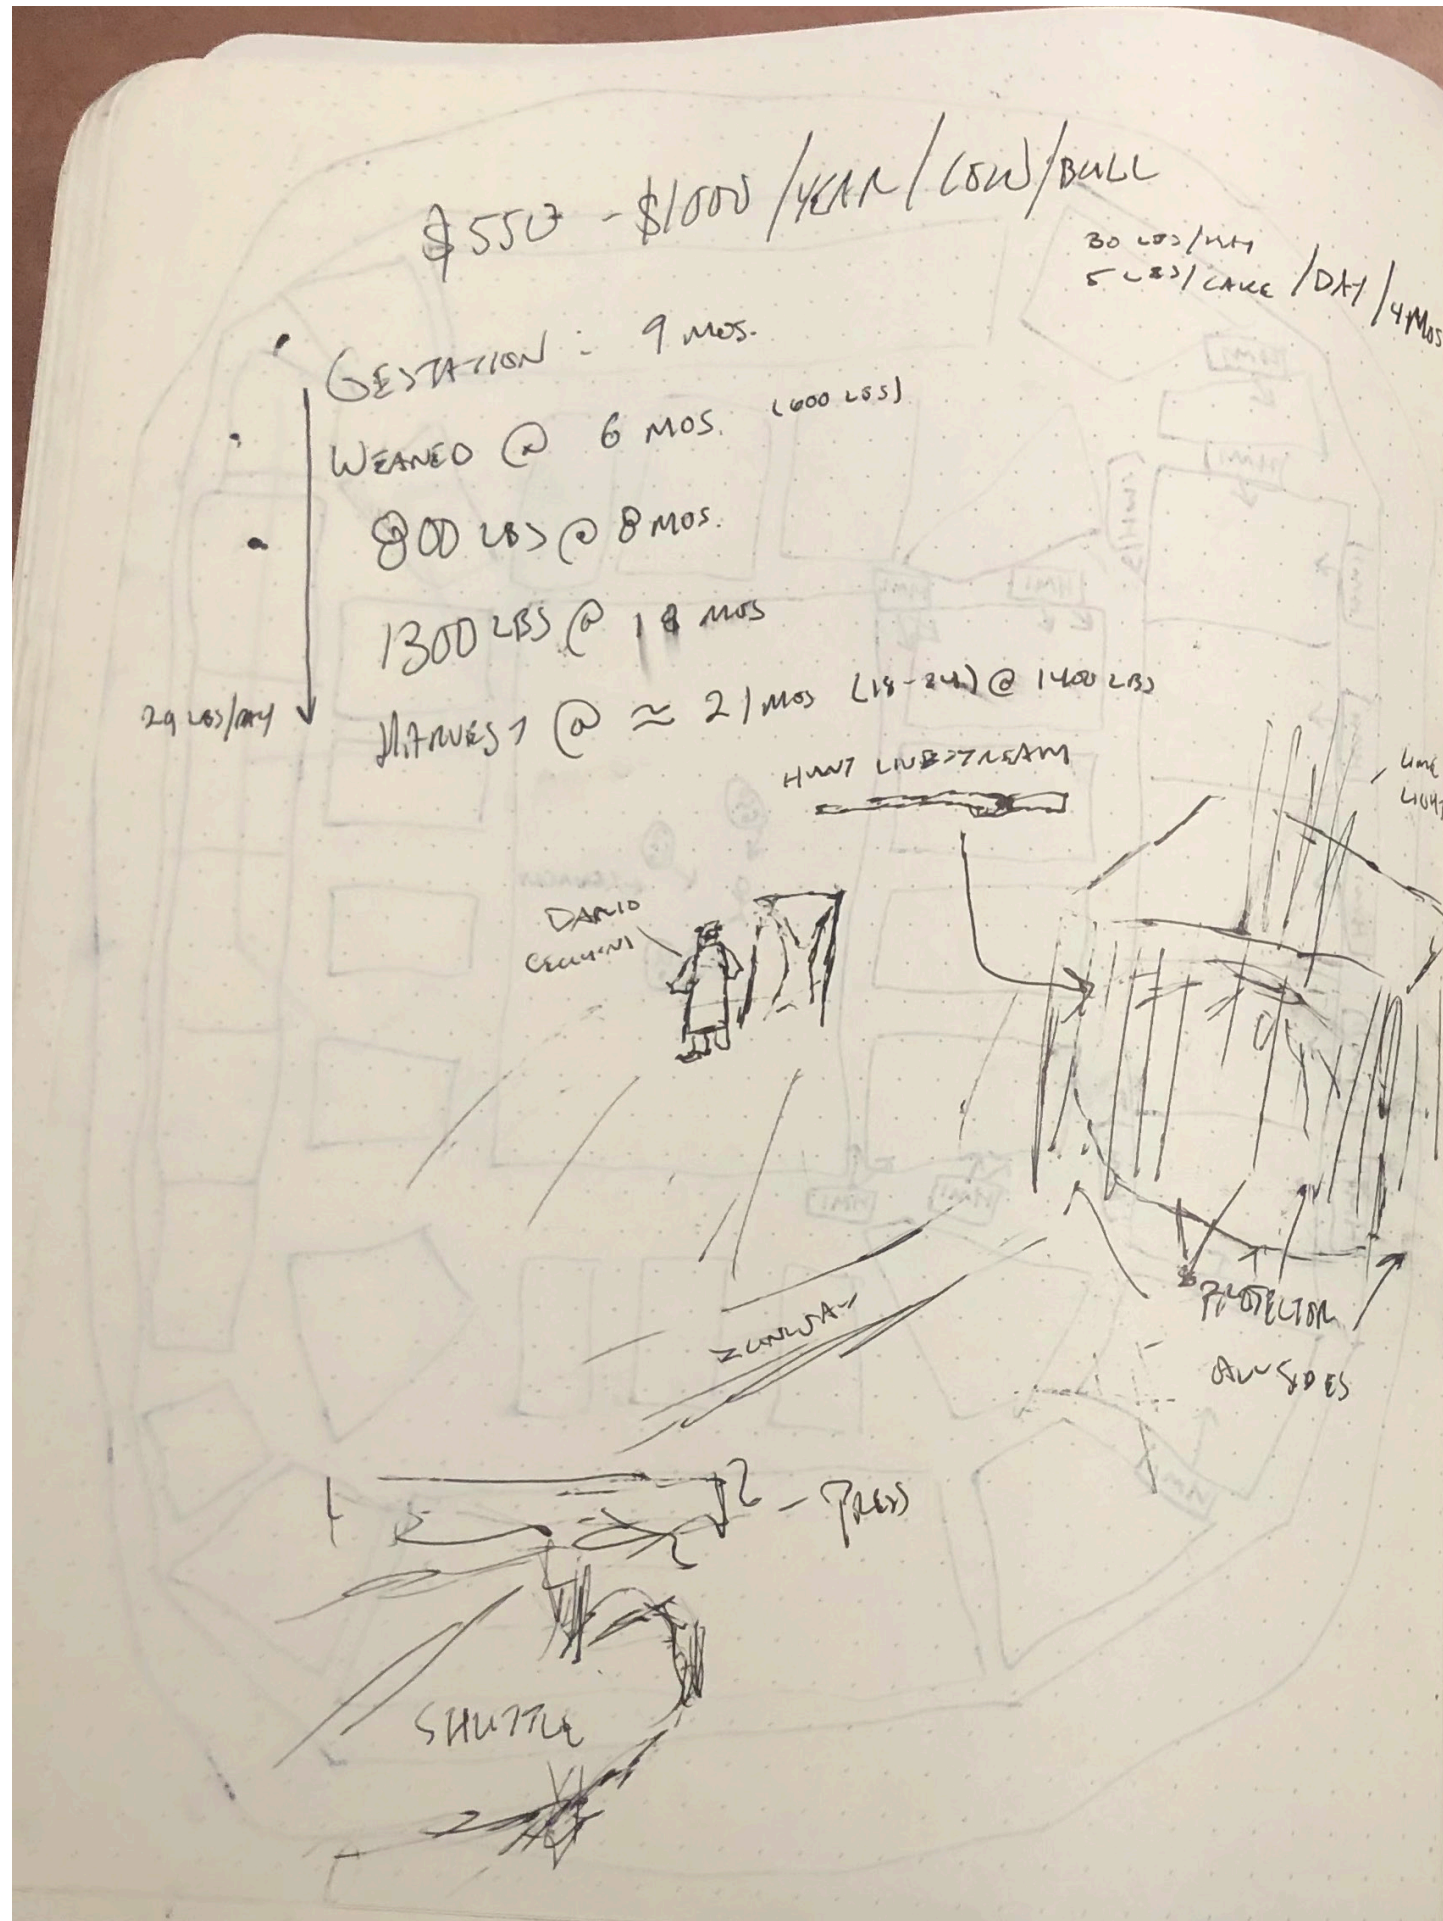 $550 - $1000 /YEAR / COW/BULL
30 LBS/HAY
5 LBS/CAKE /DAY/4 MOS
GESTATION : 9 MOS.
WEANED @ 6 MOS. (600 LBS)
800 LBS @ 8 MOS.
1300 LBS @ 18 MOS
HARVEST @ ≈ 21 MOS (18-24) @ 1400 LBS
29 LBS/DAY
HUNT LIVESTREAM
LIME
LIGHT
DARIO
CECCHINI
PROJECTOR
ALL SIDES
RUNWAY
- PRESS
SHUTTLE